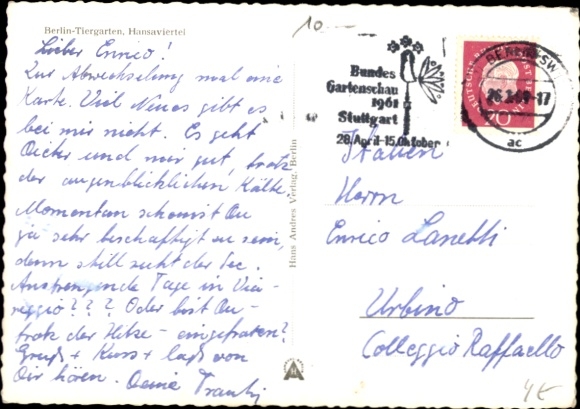 10.—
Berlin-Tiergarten, Hansaviertel
Lieber Enrico!
Zur Abwechslung mal eine
Karte. Viel Neues gibt es
bei mir nicht. Es geht
und mir gut, trotz
der augenblicklichen Kälte.
Momentan scheinst Du
ja sehr beschäftigt zu sein,
denn still ruht der See.
Anstrengende Tage in Via-
reggio??? Oder bist Du -
trotz der Hitze - eingefroren?
Gruß + Kuss + laß von
Dir hören. Deine
Hans Andres Verlag, Berlin
Bundes
Gartenschau
1961
Stuttgart
28. April - 15. Oktober
BERLIN SW
-17
ac
20
Italien
Herrn
Enrico Lanetti
Urbino
Colleggio Raffaello
4€